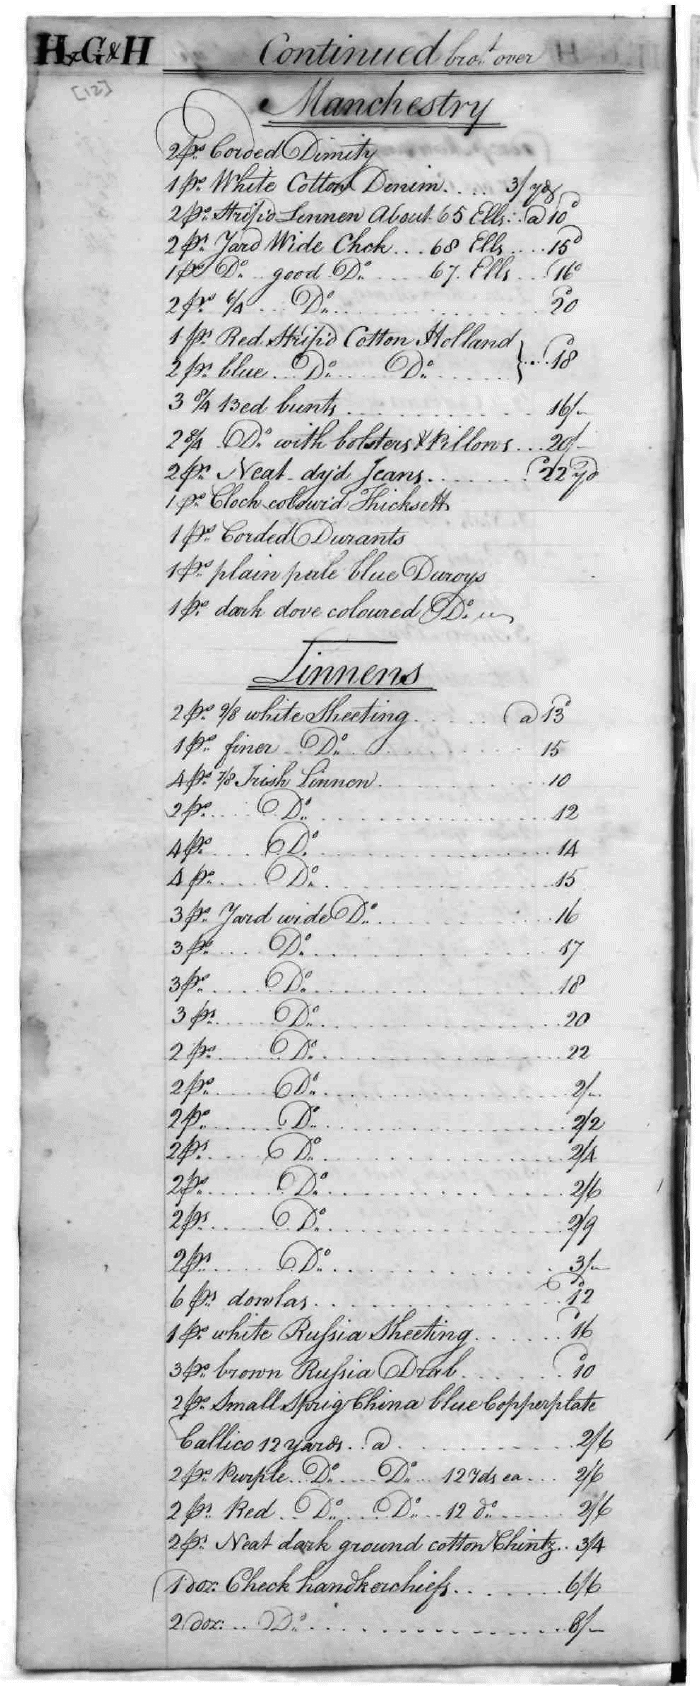 H&G&H Continued bro.t over
[512]
Manchestry
2 ps Corded Dimity
1 ps White Cotton Denim.... 3/ yd
2 ps Strip'd Linnen About 65 Ells.. a 10d
2 ps Yard Wide Chck... 68 Ells.... 15d
1 ps Do. good Do. 67. Ells... 16d
2 ps 6/4 Do. 20
1 ps Red Strip'd Cotton Holland
2 ps blue Do. Do. } ... 18
3 9/4 Bed bunts 16/-
2 8/4 Do. with bolsters & Pillows... 20/-
2 ps Neat dy'd Jeans 22 yd
1 ps Cloth colour'd Thicksett
1 ps Corded Durants
1 ps plain pale blue Duroys
1 ps dark dove coloured Do.
Linnens
2 ps 9/8 white Sheeting a 13d
1 ps finer Do. 15
4 ps 7/8 Irish Linnen 10
2 ps Do. 12
4 ps Do. 14
4 ps Do. 15
3 ps Yard wide Do. 16
3 ps Do. 17
3 ps Do. 18
3 ps Do. 20
2 ps Do. 22
2 ps Do. 2/-
2 ps Do. 2/2
2 ps Do. 2/4
2 ps Do. 2/6
2 ps Do. 2/9
2 ps Do. 3/-
6 ps dowlas 12
1 ps white Russia Sheeting 16
3 ps brown Russia Drab 10
2 ps Small Sprig China blue Copperplate
Callico 12 yards.. a 2/6
2 ps Purple Do. Do. 12 Yds ea 2/6
2 ps Red Do. Do. 12 do 2/6
2 ps Neat dark ground cotton Chintz.. 3/4
1 doz: Check handkerchiefs 6/6
2 doz: Do. 8/-